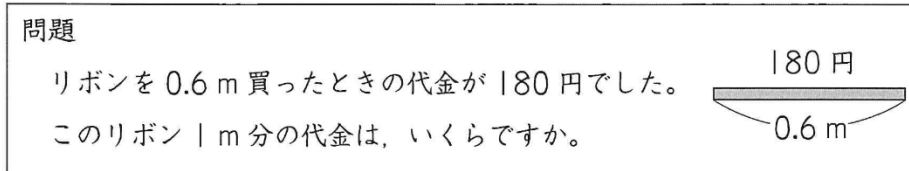 問題
リボンを 0.6 m 買ったときの代金が 180 円でした。
このリボン 1 m 分の代金は，いくらですか。
180 円
0.6 m